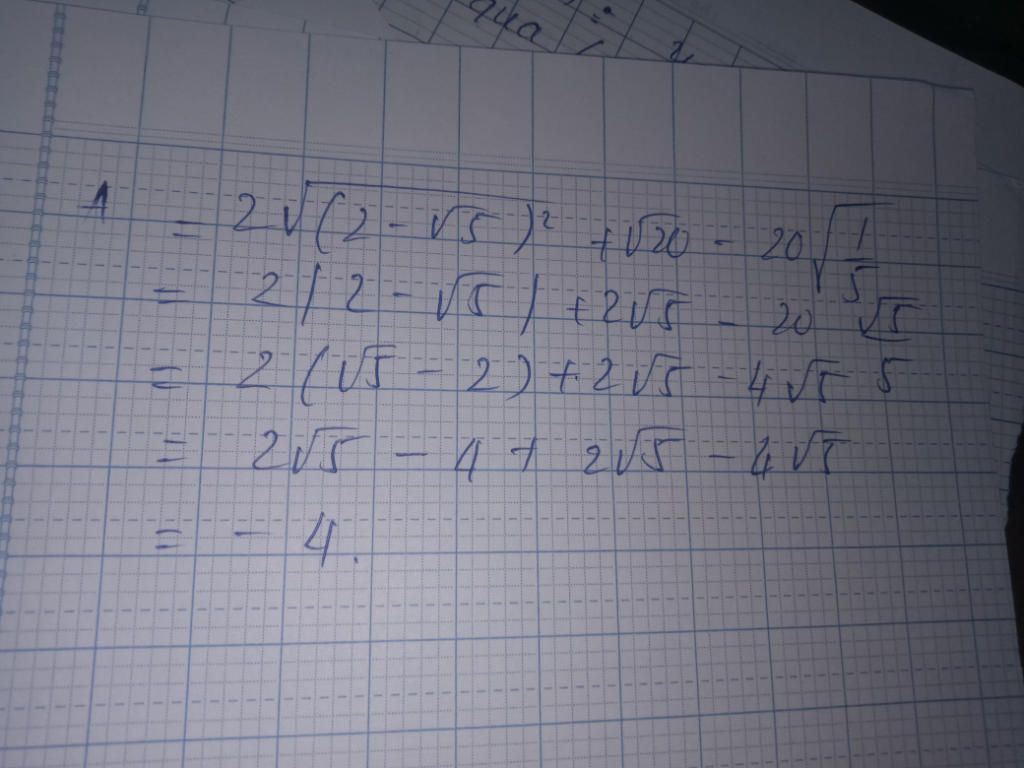 A = 2√(2 - √5)² + √20 - 20√(1/5)
= 2|2 - √5| + 2√5 - 20 √5/5
= 2(√5 - 2) + 2√5 - 4√5
= 2√5 - 4 + 2√5 - 4√5
= - 4.